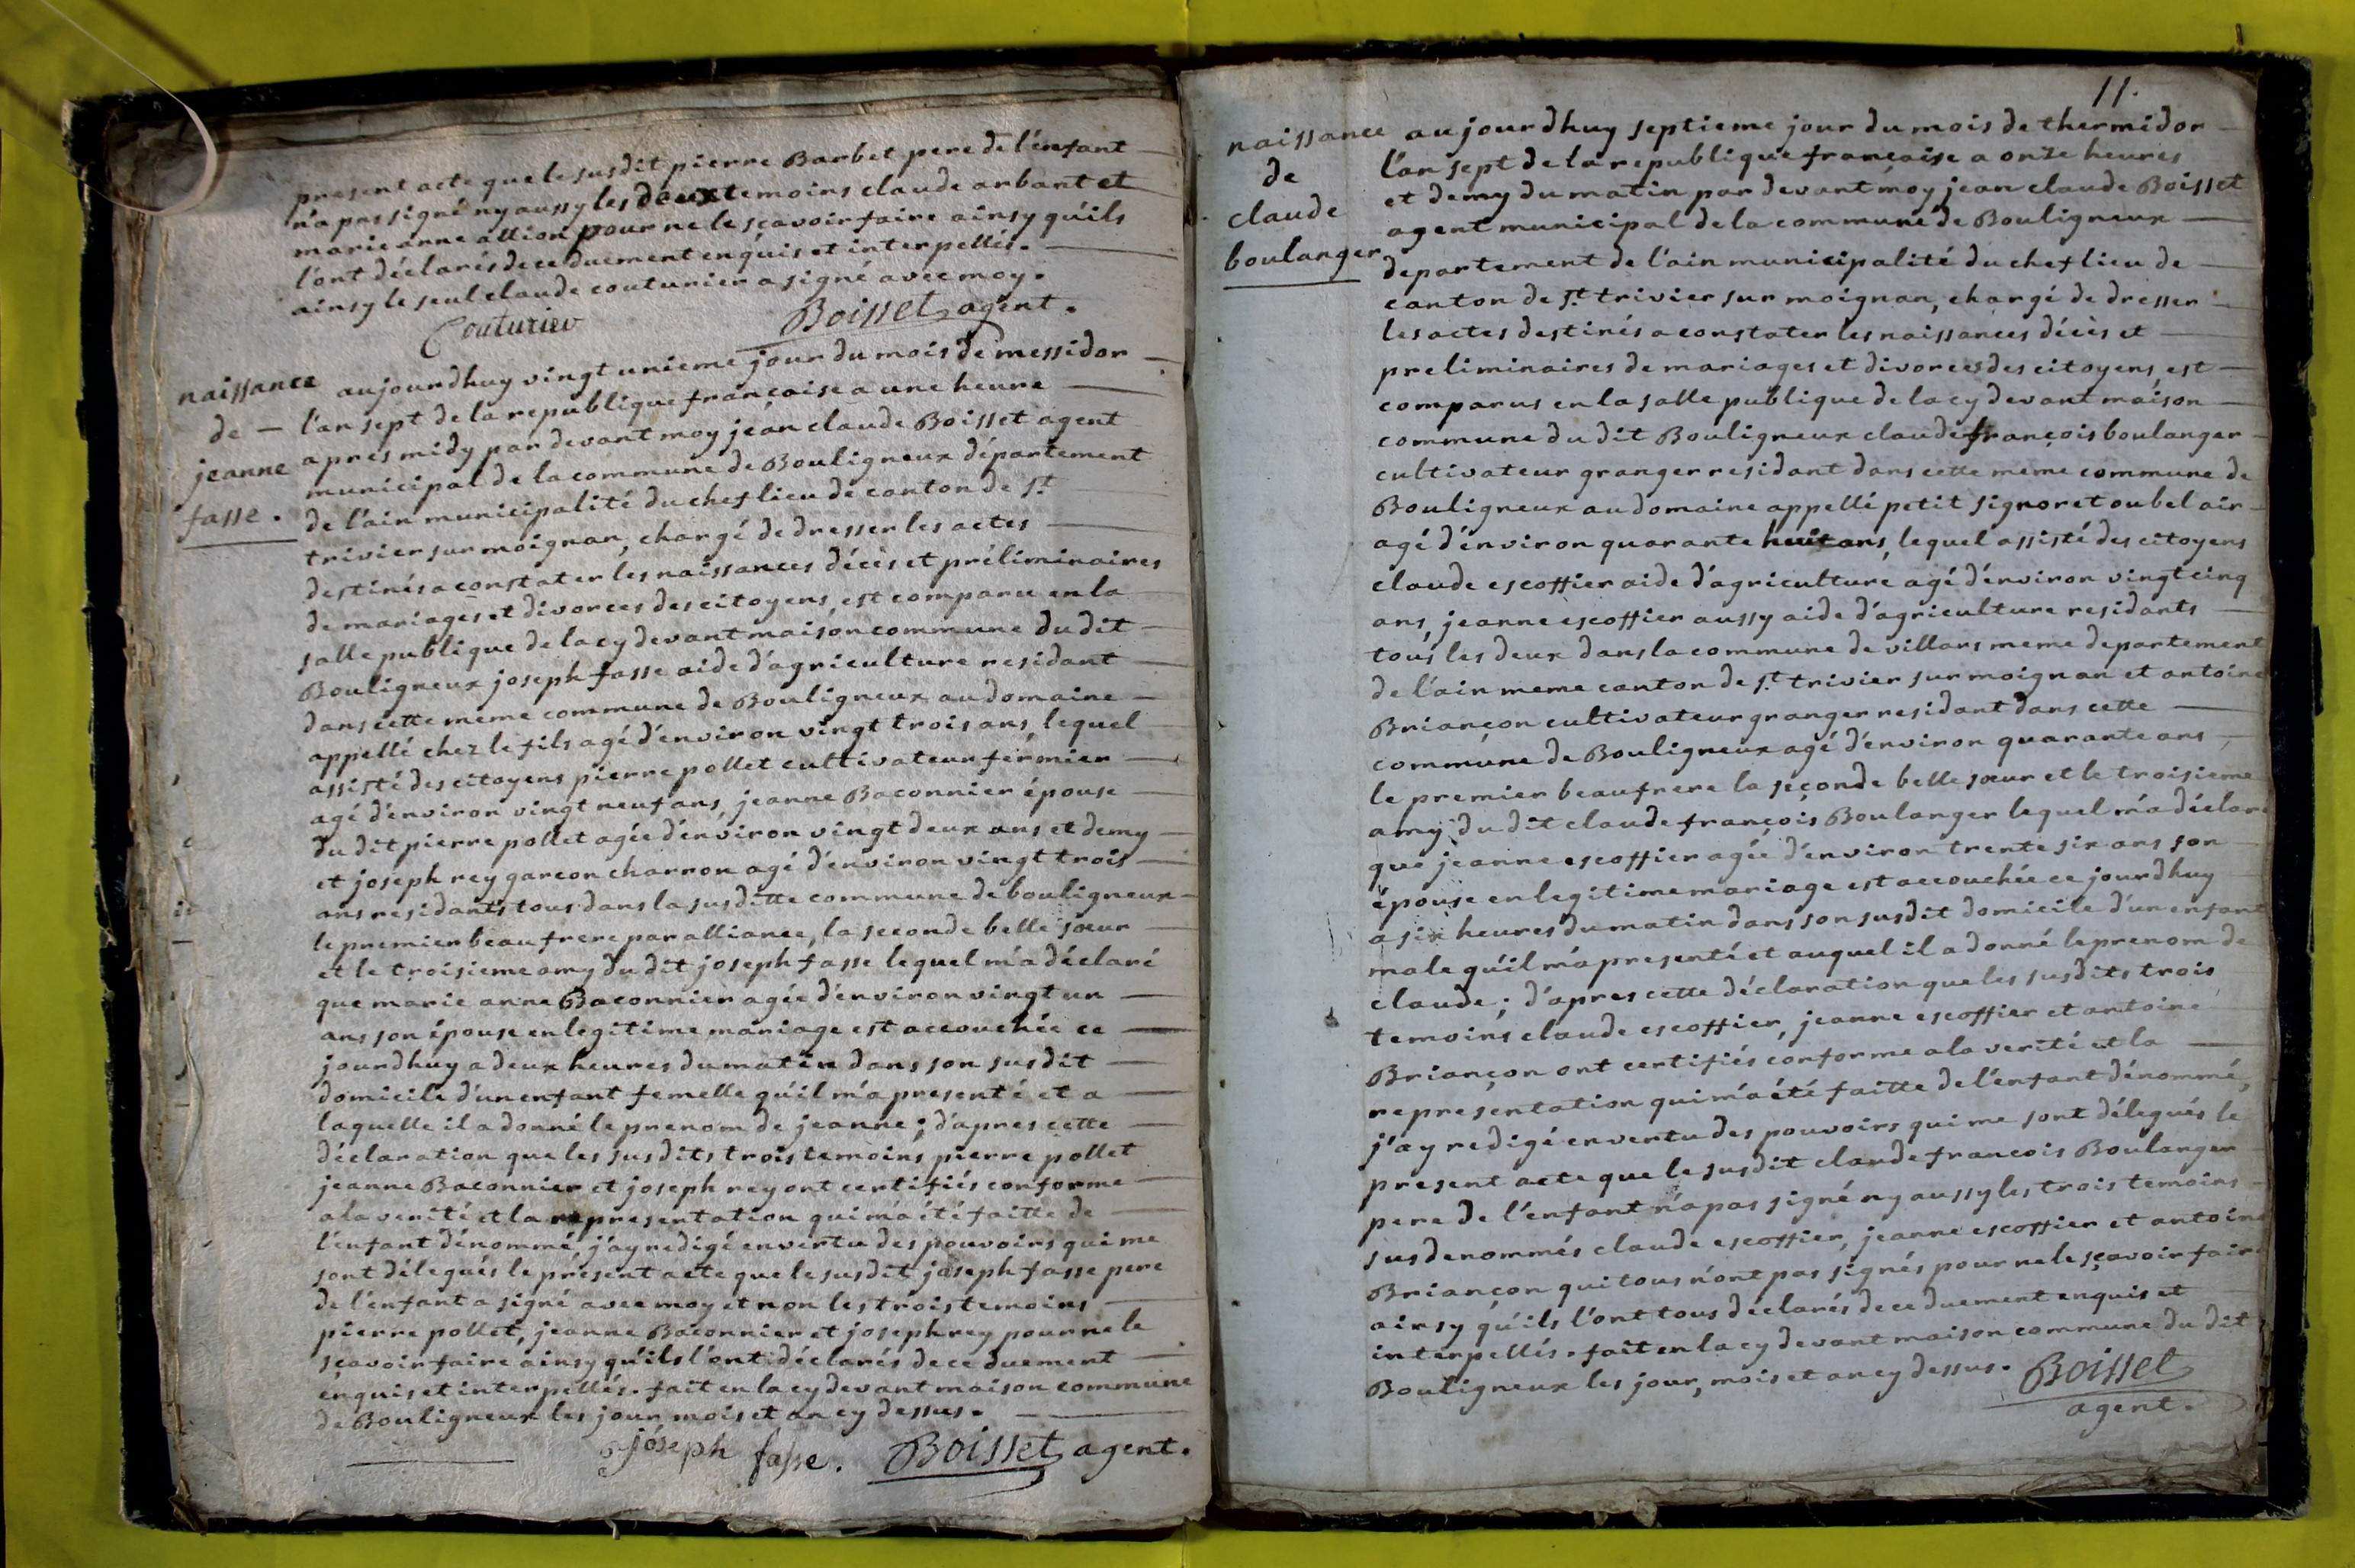 present acte que le susdit pierre Barbet pere de l'enfant
n'a pas signé ny aussy les deux temoins claude arbant et
marie anne allion pour ne le sçavoir faire ainsy qu'ils
l'ont déclarés de ce duement enquis et interpellés.
ainsy le seul claude couturier a signé avec moy.
Couturier Boisset agent.
naissance
de
jeanne
fasse.
aujourdhuy vingt unieme jour du mois de messidor
l'an sept de la republique française a une heure
apres midy par devant moy jean claude Boisset agent
municipal de la commune de Bouligneux département
de l'ain municipalité du chef lieu de canton de st
trivier sur moignan, chargé de dresser les actes
destinés a constater les naissances décès et préliminaires
de mariages et divorces des citoyens, est comparu en la
salle publique de la cy devant maison commune du dit
Bouligneux joseph fasse aide d'agriculture residant
dans cette meme commune de Bouligneux au domaine
appellé chez le fils agé d'environ vingt trois ans, lequel
assisté des citoyens pierre pollet cultivateur fermier
agé d'environ vingt neuf ans, jeanne Baconnier épouse
du dit pierre pollet agée d'environ vingt deux ans et demy
et joseph rey garcon charron agé d'environ vingt trois
ans residants tous dans la susditte commune de bouligneux
le premier beaufrere par alliance, la seconde belle sœur
et le troisieme amy du dit joseph fasse lequel m'a déclaré
que marie anne Baconnier agée d'environ vingt un
ans son épouse en legitime mariage est accouchée ce
jourdhuy a deux heures du matin dans son susdit
domicile d'un enfant femelle qu'il m'a presenté et a
laquelle il a donné le prenom de jeanne; d'apres cette
déclaration que les susdits trois temoins pierre pollet
jeanne Baconnier et joseph rey ont certifiés conforme
a la verité et la representation qui m'a été faitte de
l'enfant dénommé, j'ay redigé en vertu des pouvoirs qui me
sont délegués le présent acte que le susdit joseph fasse pere
de l'enfant a signé avec moy et non les trois temoins
pierre pollet, jeanne Baconnier et joseph rey pour ne le
sçavoir faire ainsy qu'ils l'ont déclarés de ce duement
enquis et interpellés. fait en la cy devant maison commune
de Bouligneux les jour, mois et an cy dessus.
joseph fasse. Boisset agent.
11.
naissance
de
claude
boulanger
aujourdhuy septieme jour du mois de thermidor
l'an sept de la republique française a onze heures
et demy du matin par devant moy jean claude Boisset
agent municipal de la commune de Bouligneux
departement de l'ain municipalité du chef lieu de
canton de st trivier sur moignan, chargé de dresser
les actes destinés a constater les naissances décès et
preliminaires de mariages et divorces des citoyens, est
comparus en la salle publique de la cy devant maison
commune du dit Bouligneux claude françois boulanger
cultivateur granger residant dans cette meme commune de
Bouligneux au domaine appellé petit signoret ou bel air
agé d'environ quarante huit ans, lequel assisté des citoyens
claude escoffier aide d'agriculture agé d'environ vingt cinq
ans, jeanne escoffier aussy aide d'agriculture residants
tous les deux dans la commune de villars meme departement
de l'ain meme canton de st trivier sur moignan et antoine
Briançon cultivateur granger residant dans cette
commune de Bouligneux agé d'environ quarante ans,
le premier beaufrere la seconde belle sœur et le troisieme
amy du dit claude françois Boulanger lequel m'a déclaré
que jeanne escoffier agée d'environ trente six ans son
épouse en legitime mariage est accouchée ce jourdhuy
a six heures du matin dans son susdit domicile d'un enfant
male qu'il m'a presenté et auquel il a donné le prenom de
claude; d'apres cette déclaration que les susdits trois
temoins claude escoffier, jeanne escoffier et antoine
Briançon ont certifiés conforme a la verité et la
representation qui m'a été faitte de l'enfant dénommé,
j'ay redigé en vertu des pouvoirs qui me sont délegués le
present acte que le susdit claude francois Boulanger
pere de l'enfant n'a pas signé ny aussy les trois temoins
susdenommés claude escoffier, jeanne escoffier et antoine
Briançon qui tous n'ont pas signés pour ne le sçavoir faire
ainsy qu'ils l'ont tous declarés de ce duement enquis et
interpellés. fait en la cy devant maison commune du dit
Bouligneux les jour, mois et an cy dessus. Boisset
agent.